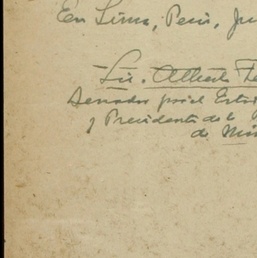 En Lima, Perú, Ju
Lic. Alberto Te
Senador por el Esta
y Presidente de la
de Mé